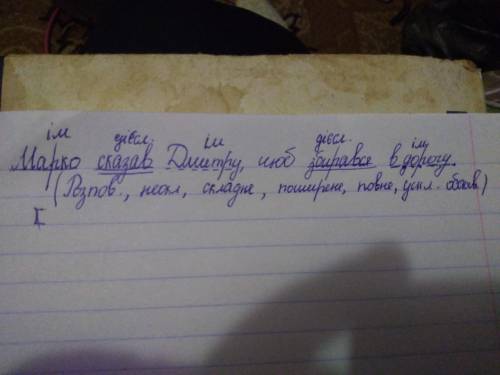 ім дієсл. ім дієсл. ім
Марко сказав Дмитру, щоб збирався в дорогу.
(Розпов., неокл, складне, поширене, повне, ускл. обстав.)
[